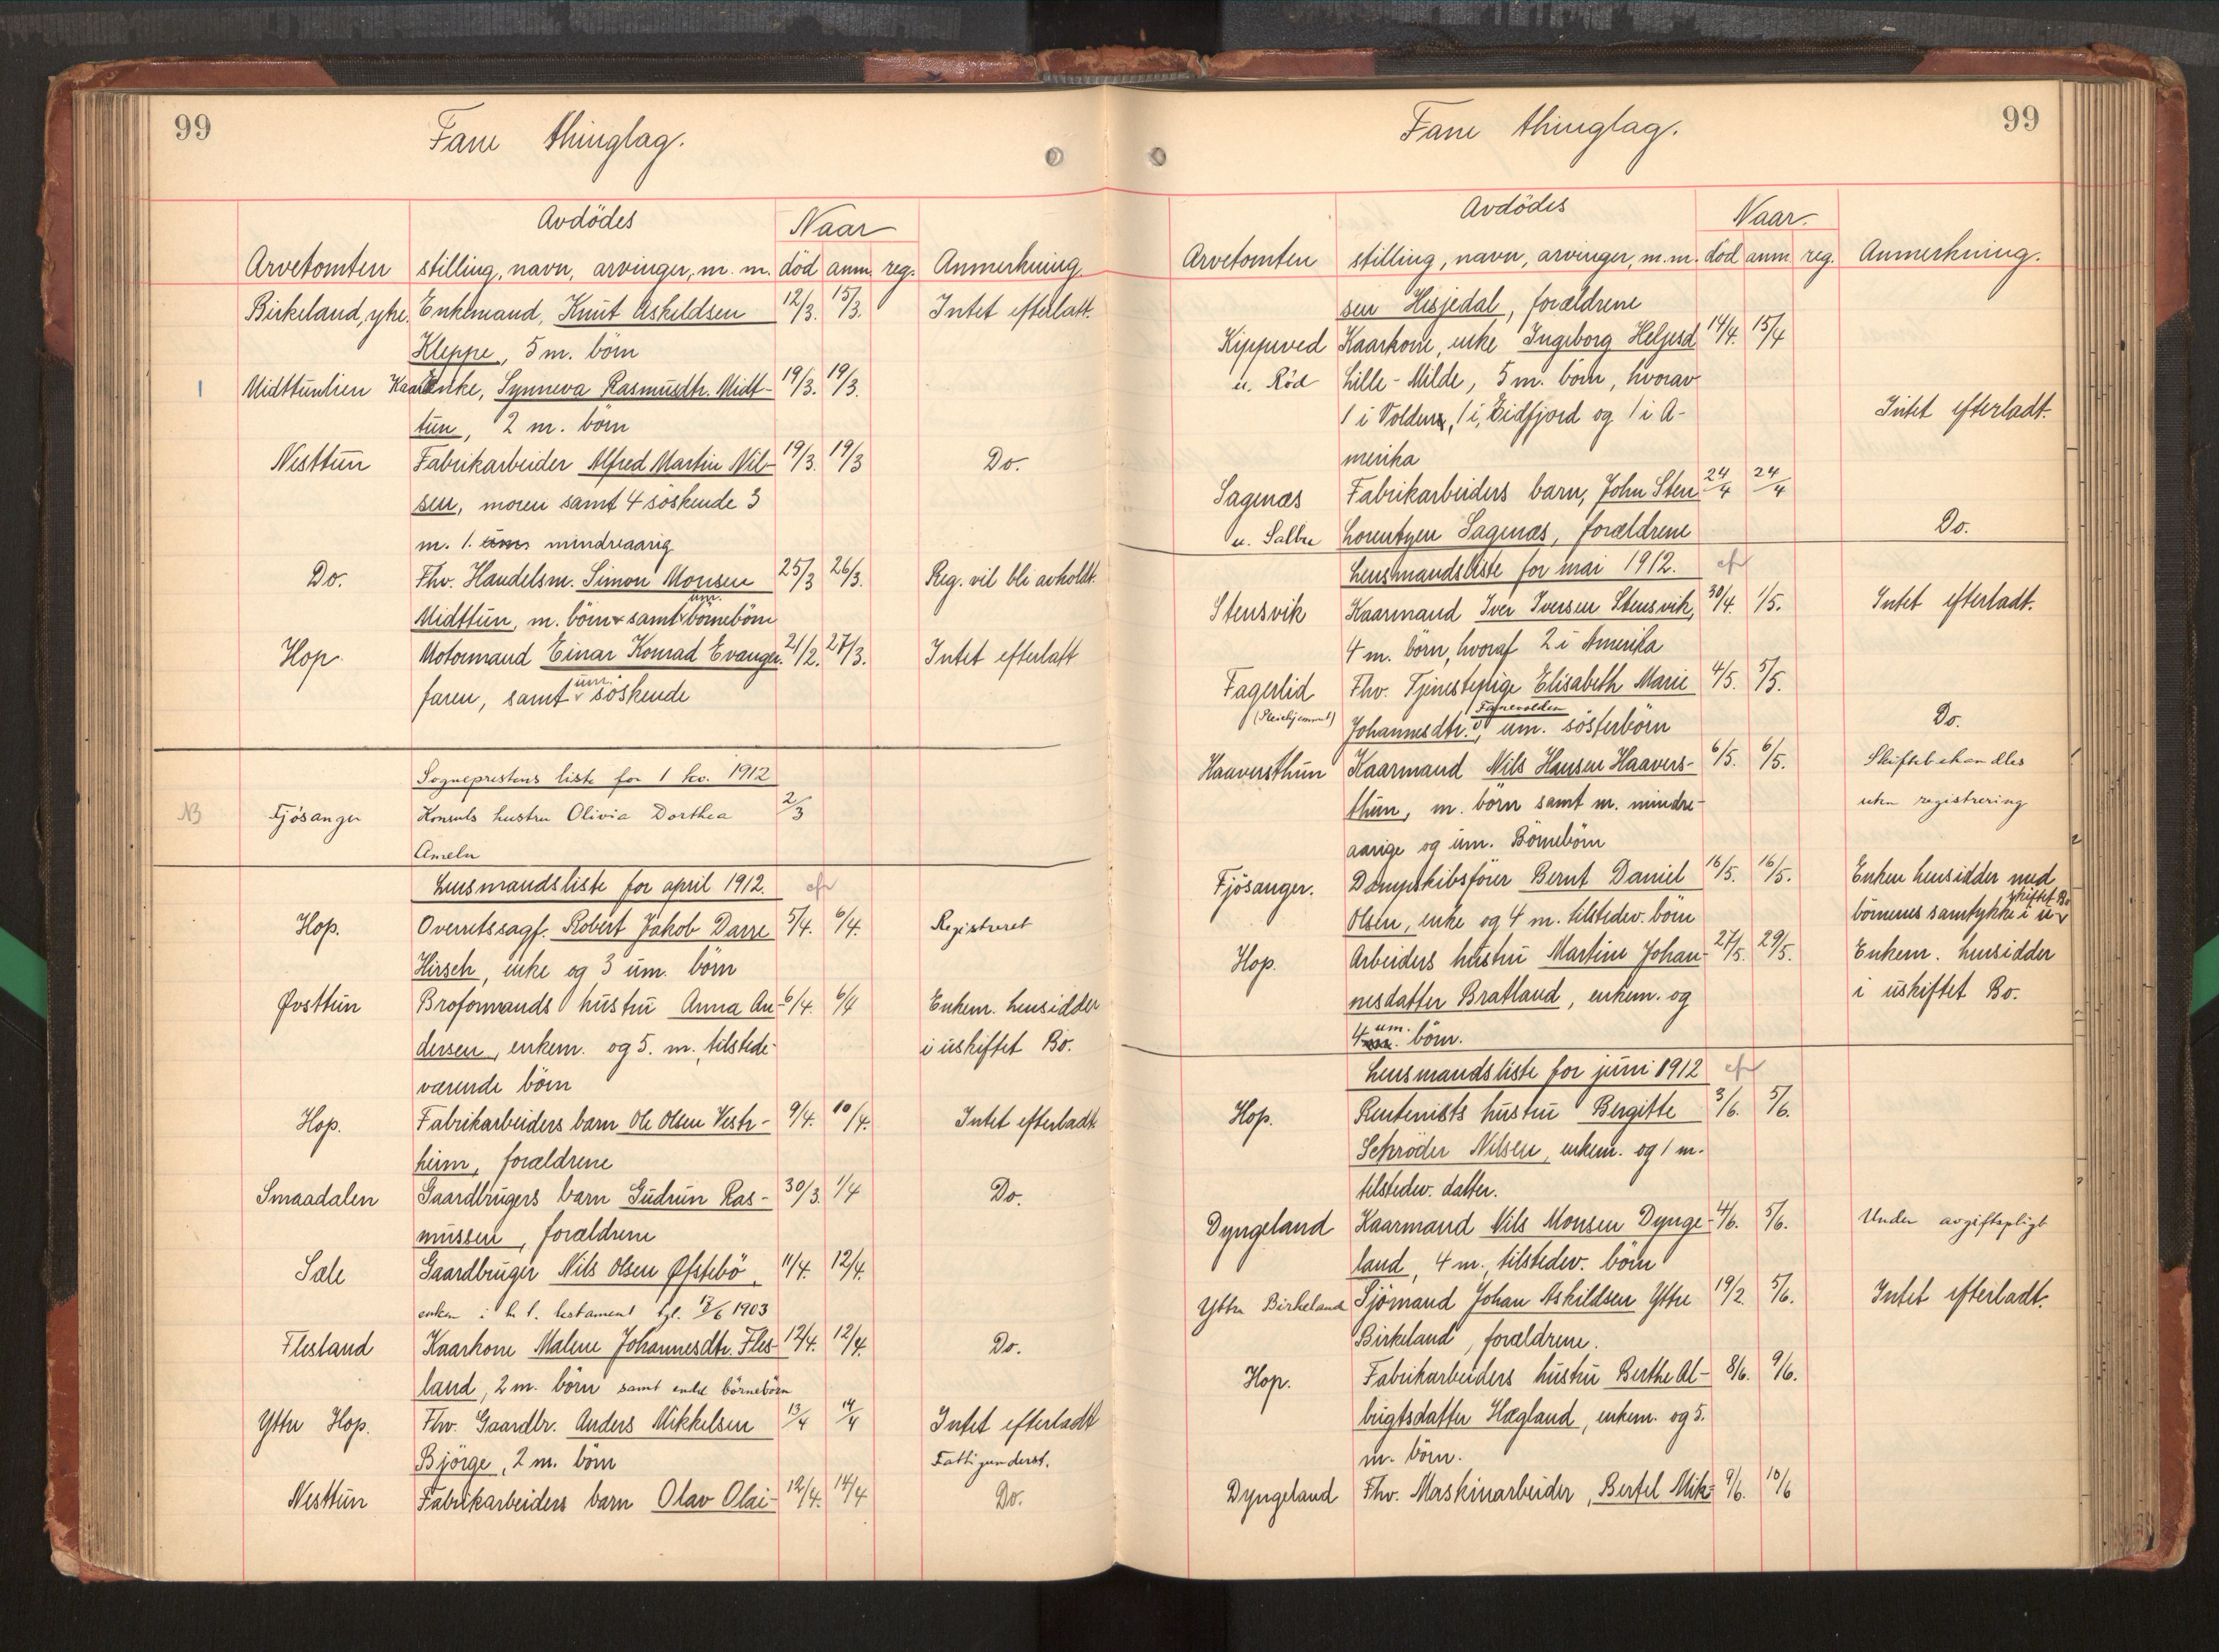 99
Fane thinglag.
Avdödes Naar
Arvetomten stilling, navn, arvinger, m. m. död anm. reg. Anmerkning.
Birkeland, ytre. Enkemand, Knut Askildsen 12/3. 15/3. Intet efterlatt.
Kleppe, 5 m. börn
1 Midttunlien Kaarenke, Synneva Rasmusdtr. Midt- 19/3. 19/3.
tun, 2 m. börn
Nesttun Fabrikarbeider Alfred Martin Nil- 19/3. 19/3 Do.
sen, moren samt 4 söskende 3
m. 1. mindreaarig
Do. Fhv. Handelsm. Simon Monsen 25/3 26/3. Reg. vil bli avholdt.
um.
Midttun, m. börn samt börnebörn
Hop. Motormand Einar Konrad Evanger. 21/2. 27/3. Intet efterlatt
um.
faren, samt söskende
Sogneprestens liste for 1 kv. 1912
NB Fjösanger Konsuls hustru Olivia Dorthea 2/3
Ameln
Lensmandsliste for april 1912.
Hop. Overretssagf. Robert Jakob Darre 5/4. 6/4. Registreret
Hirsch, enke og 3 um. börn
Øvsttun Broformands hustru Anna An- 6/4. 6/4 Enkem. hensidder
dersen, enkem. og 5. m. tilstede- i uskiftet Bo.
værende börn
Hop. Fabrikarbeiders barn Ole Olsen Vestr- 9/4. 10/4. Intet efterladt.
heim, forældrene
Smaadalen Gaardbrugers barn Gudrun Ras- 30/3. 1/4 Do.
mussen, forældrene
Sæle Gaardbruger Nils Olsen Øfstebö, 11/4. 12/4.
enken i h. t. testament tgl. 17/6 1903
Flesland Kaarkone Malene Johannesdtr. Fles- 12/4. 12/4. Do.
land, 2 m. börn samt endel börnebörn
Yttre Hop. Fhv. Gaardbr. Anders Mikkelsen 13/4 14/4 Intet efterladt
Björge, 2 m. börn Fattigunderst.
Nesttun Fabrikarbeiders barn Olav Olai- 12/4. 14/4 Do.
99
Fane thinglag.
Avdödes Naar.
Arvetomten stilling, navn, arvinger, m.m. död anm reg. Anmerkning.
sen Hisjedal, forældrene
Kippeved Kaarkone, enke Ingeborg Helgesd 14/4. 15/4
u. Röd Lille-Milde, 5 m. börn, hvorav
1 i Volden, 1 i Eidfjord og 1 i A- Intet efterladt.
merika
Sagenæs Fabrikarbeiders barn, John Sten 24/4 24/4
u. Salbu Lorentzen Sagenæs, forældrene Do.
Lensmandsliste for mai 1912.
Stensvik Kaarmand Iver Iversen Stensvik, 30/4. 1/5. Intet efterladt.
4 m. börn, hvoraf 2 i Amerika
Fagerlid Fhv. Tjenestepige Elisabeth Marie 4/5. 5/5.
(Pleiehjemmet) Fanevolden
Johannesdtr., um. sösterbörn Do.
Haaversthun Kaarmand Nils Hansen Haavers- 6/5. 6/5. Skiftebehandles
thun, m. börn samt m. mindre- uten registrering
aarige og um. Börnebörn
Fjösanger. Dampskibsförer Bernt Daniel 16/5. 16/5. Enken hensidder med
skiftet Bo
Olsen, enke og 4 m. tilstedev. börn börnenes samtykke i u-
Hop. Arbeiders hustru Martine Johan- 27/5. 29/5. Enkem. hensidder
nesdatter Bratland, enkem. og i uskiftet Bo.
um.
4 börn.
Lensmandsliste for juni 1912
Hop. Rentenists hustru Bergitte 3/6. 5/6.
Schröder Nilsen, enkem. og 1 m.
tilstedev. datter.
Dyngeland Kaarmand Nils Monsen Dynge- 4/6. 5/6. Under avgiftspligt
land, 4 m. tilstedev. börn
Yttre Birkeland Sjömand Johan Askildsen Yttre 19/2. 5/6. Intet efterladt.
Birkeland, forældrene.
Hop. Fabrikarbeiders hustru Berthe Al- 8/6. 9/6.
brigtsdatter Hægland, enkem. og 5.
m. börn.
Dyngeland Fhv. Maskinarbeider, Bertel Mik- 9/6. 10/6